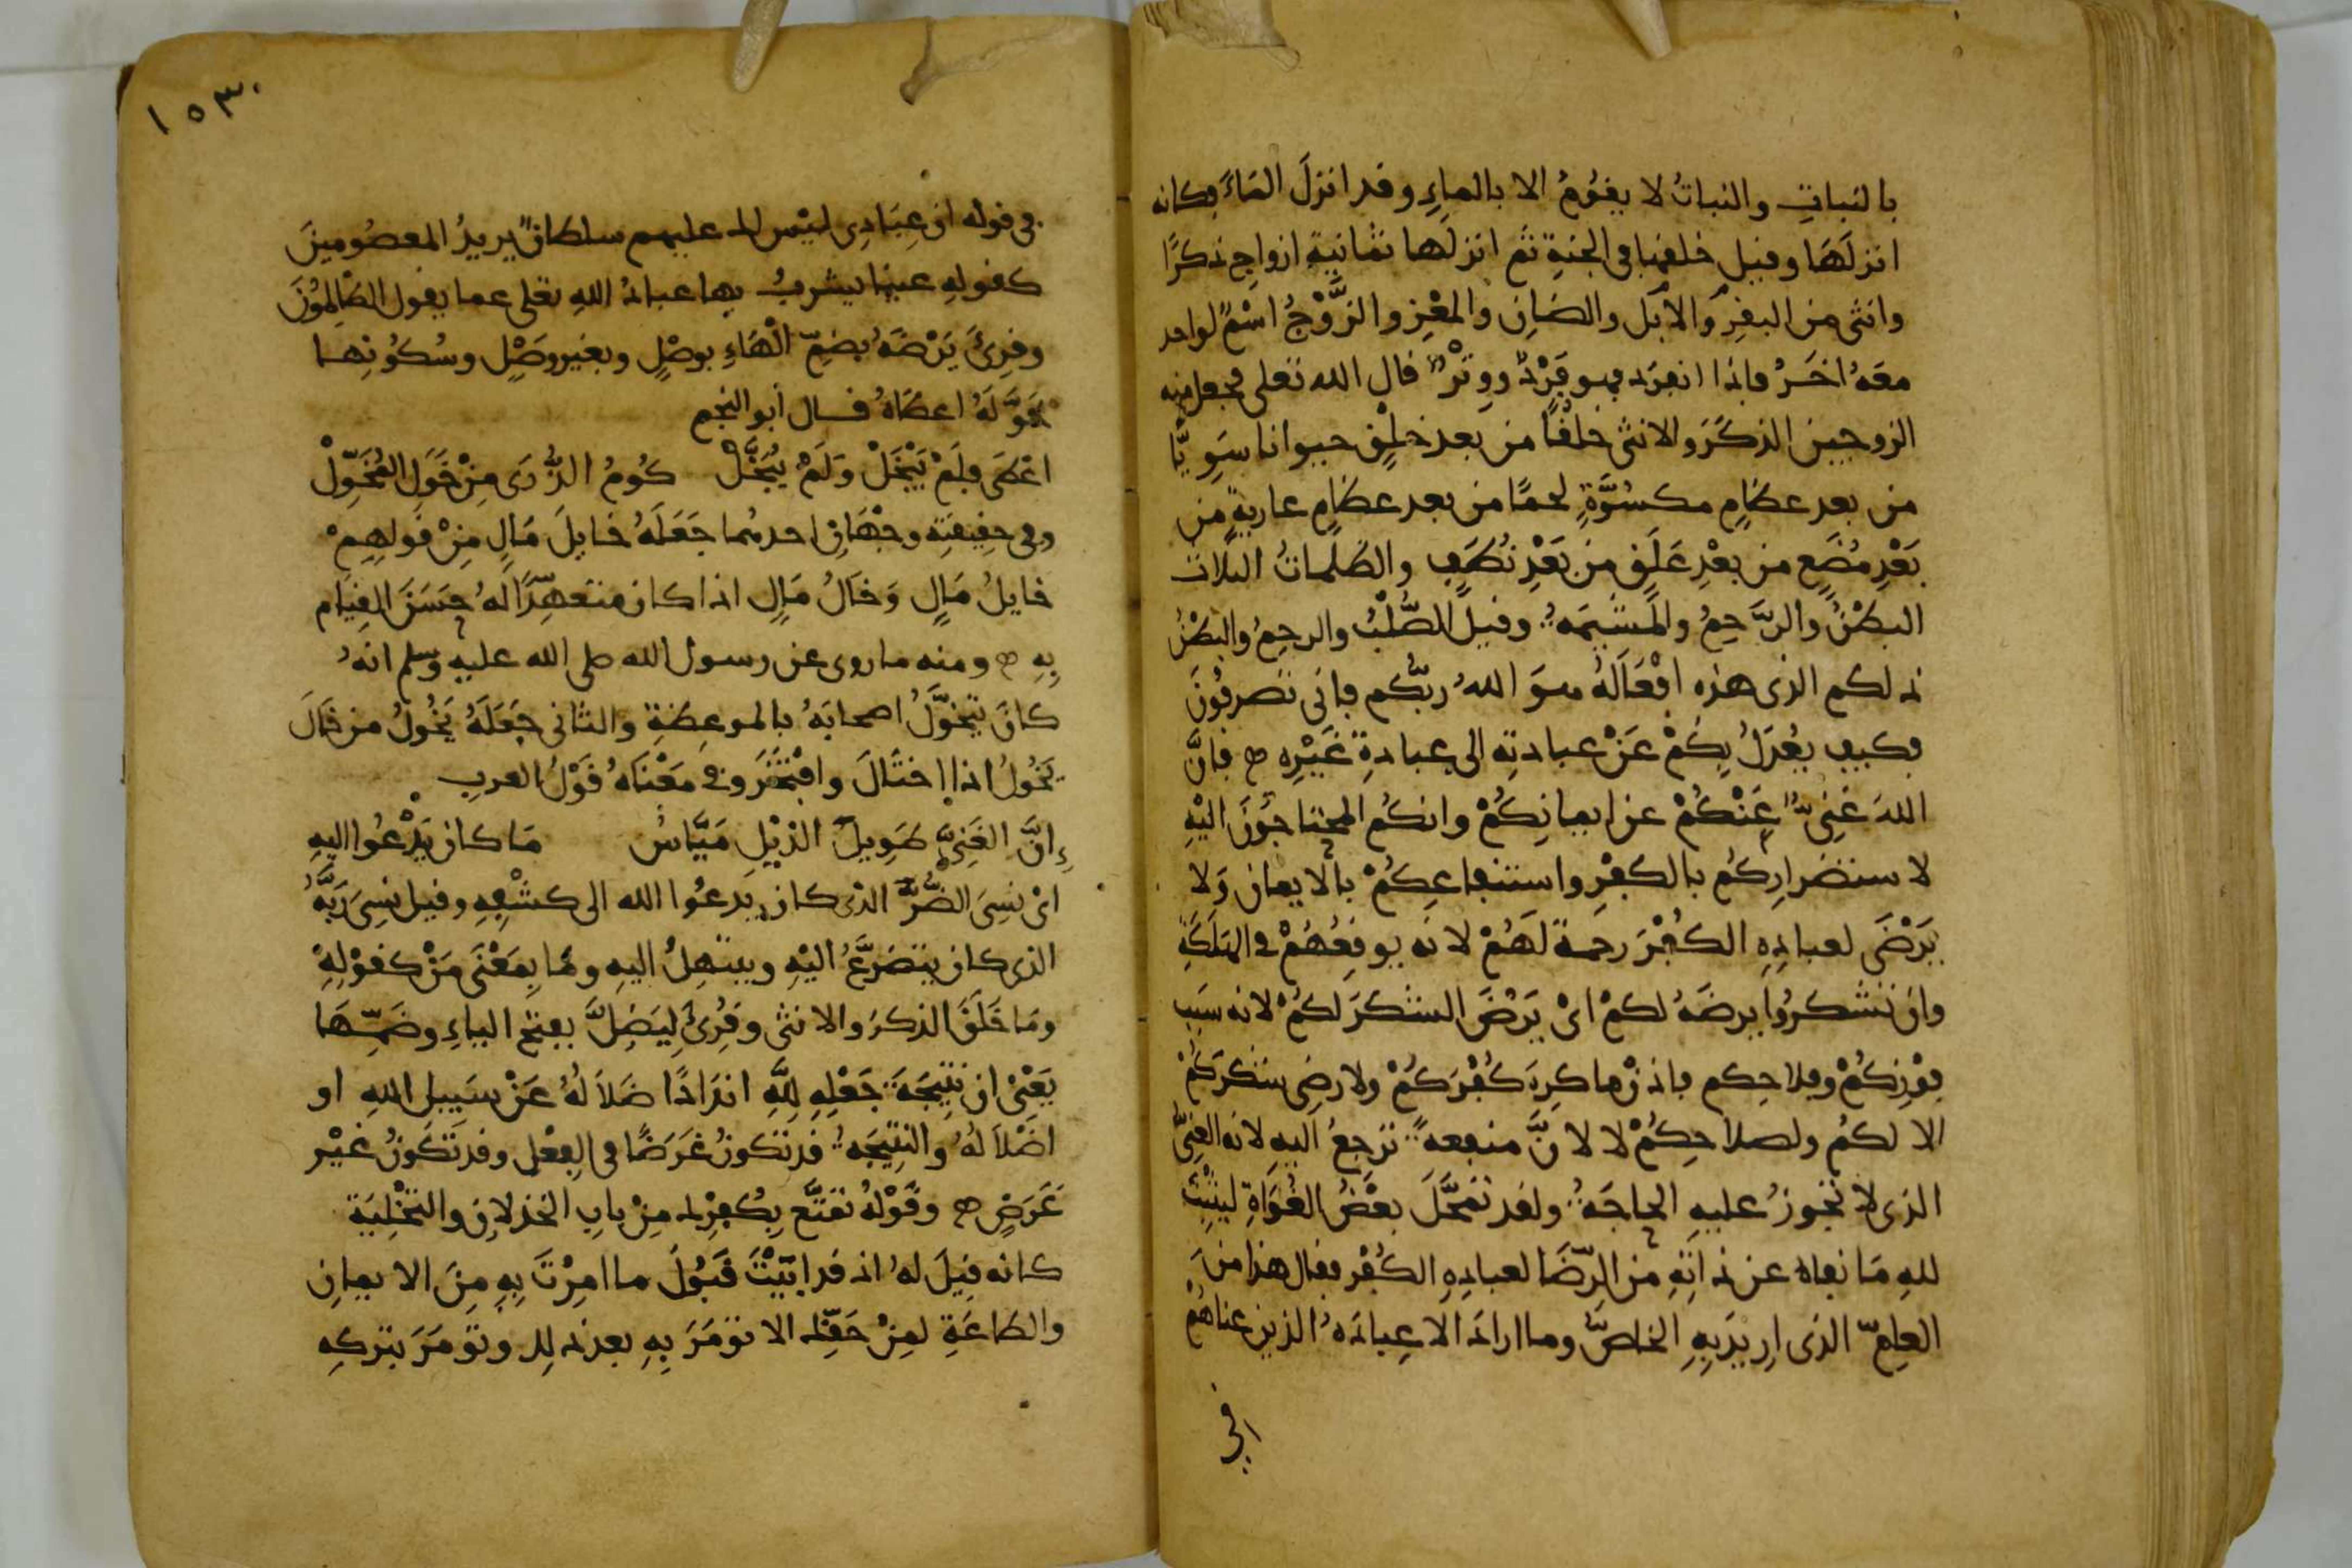 بالنباتِ والنباتُ لا يقومُ الا بالماءِ وقد انزلَ المَاءَ فكانه
انزلَهَا وقيل خلقها في الجنةِ ثم انزلَها ثمانيةِ ازواجٍ ذكرًا
وانثى من البقرِ والابل والضانِ والمعْزِ والزَّوْجُ اسْمٌ لواحد
معَهُ اخَرُ فاذا انفرَد فهو فَرْدٌ ووِتْرٌ قال الله تعلى فجعل منه
الزوجين الذكَرَ والانثى خلقًا من بعد خلْقٍ حيوانا سَوِيًّا
من بعد عظامٍ مكسُوَّةٍ لحمًا من بعد عظامٍ عاريةٍ من
بَعْدِ مُضَغٍ من بعْدِ عَلَقٍ من بَعْدِ نُطَفٍ والظلماتُ الثلاث
البطْنُ والرَّحِمُ والمَشِيمَهُ وقيلَ الصُّلْبُ والرحِمُ والبطْنُ
ذلكم الذى هذه افْعَالُهُ هوَ اللهُ ربُّكم فانى تصرفُونَ
فكيف يعْدَلُ بِكمْ عَنْ عبادتِه الى عبادةِ غَيْرِه فانَّ
اللهَ غنِىٌّ عَنْكُمْ عن ايمانِكُمْ وانكُم المحتاجُونَ اليْهِ
لاستضرارِكُم بالكفْرِ واستنفاعِكُمْ بالايمان وَلا
يَرْضَى لعبادِهِ الكُفْرَ رحمةً لَهُمْ لانه يوقِعُهُمْ في الهَلَكَةِ
وان تشكرُوا يرضَهُ لكمْ اىْ يَرْضَ الشكرَ لكُمْ لانه سَبب
فوْزِكُمْ وفلاحِكم فاذنْ ما كرِهَ كُفْرَكُمْ ولا رضِى شكرَكُمْ
الا لكُم ولصلاحِكُمْ لا لانَّ منفعهً ترجعُ اليهِ لانه الغنِىُّ
الذى لا تجوزُ عليهِ الحاجَهُ ولقد تمحَّلَ بعْضُ الغُوَاةِ ليُثْبِتَ
للهِ مَا نفاه عن ذاتِهِ من الرِّضَا لعبادِهِ الكُفْرَ فقال هذا منَ
العامّ الذى اريدَ بِهِ الخاصُّ وما اراد الا عِبادَهُ الذين عناهُمْ
في
١٥٣
في قوله ان عِبَادِى ليْس لك عليهم سلطانٌ يريدُ المعصُومينَ
كقولهِ عينا يشربُ بها عبادُ اللهِ تعلى عما يقول الظالمُونَ
وقرِئَ يَرْضَهُ بضمّ الْهَاءِ بوصْلٍ وبغير وصْلٍ وسُكُونِها
خوَّلَهُ اعطَاهُ قال أبو النجم
اعْطَى فلَمْ يَبْخَلْ وَلَمْ يُبَخَّلْ كُومُ الذُّرَى مِنْ خَوَلِ المُخَوِّلْ
وفى حقِيقتِه وجْهَانِ احدهُما جَعَلَهُ خايلَ مَالٍ مِنْ قولهِمْ
خايلُ مَالٍ وَخَالُ مَالٍ اذا كان متعهِّدًا لهُ حسَنَ القِيَام
بِهِ ومنه ما روى عن رسول الله صلى الله عليه وسلم انهُ
كانَ يتخوَّلُ اصحابَهُ بالموعظةِ والثانى جَعَلَهُ يَخُولُ من خَالَ
يَخُولُ اذا اختَالَ وافْتَخَرَ وفى معْنَاهُ قَوْلُ العربِ
إِنَّ الغَنِىَّ طَوِيلُ الذيْلِ مَيَّاسُ مَا كان يَدْعُوا اليهِ
اىْ نسِىَ الضُّرَّ الذى كان يدعُوا الله الى كشْفِهِ وقيل نسِىَ رَبَّهُ
الذى كان يتضرَّعُ اليْهِ ويبتهلُ اليهِ ومَا بِمَعْنَى مَنْ كقوْلِهِ
ومَا خَلَقَ الذكرَ والانثى وقُرِئَ لِيَضِلَّ بفتح الياءِ وضَمِّهَا
يَعْنى ان نتِيجَةَ جَعْلِهِ لِلَّهِ اندَادًا ضَلاَلُهُ عَنْ سَبِيل اللهِ او
اضْلاَلُهُ والنتِيجَهُ قد تكونُ غرَضًا في الفِعْل وقد تَكُونُ غيْر
غَرَضٍ وقَوْلُهُ تمتَّع بِكُفْرِك مِنْ بابِ الخذلانِ والتخْلِيَة
كانه قِيلَ لهُ اذ قد ابَيْتَ قَبُولَ ما امِرْتَ بِهِ مِنَ الايمانِ
والطاعَةِ فمِنْ حَقِّك الا تومَرَ بِهِ بعد ذلِك وتومَرَ بتركِهِ